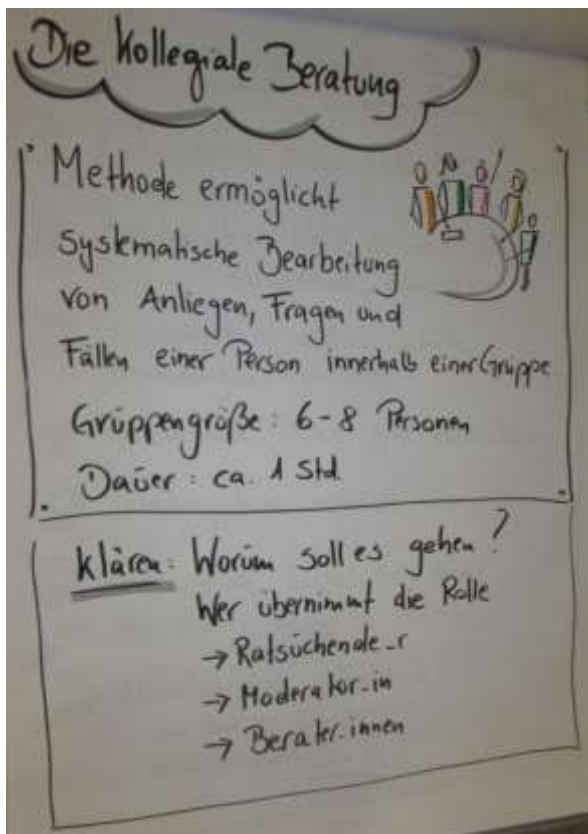 Die Kollegiale Beratung
Methode ermöglicht
systematische Bearbeitung
von Anliegen, Fragen und
Fällen einer Person innerhalb einer Gruppe
Gruppengröße: 6-8 Personen
Dauer: ca. 1 Std.
klären: Worum soll es gehen?
Wer übernimmt die Rolle
→ Ratsuchende_r
→ Moderator_in
→ Berater_innen